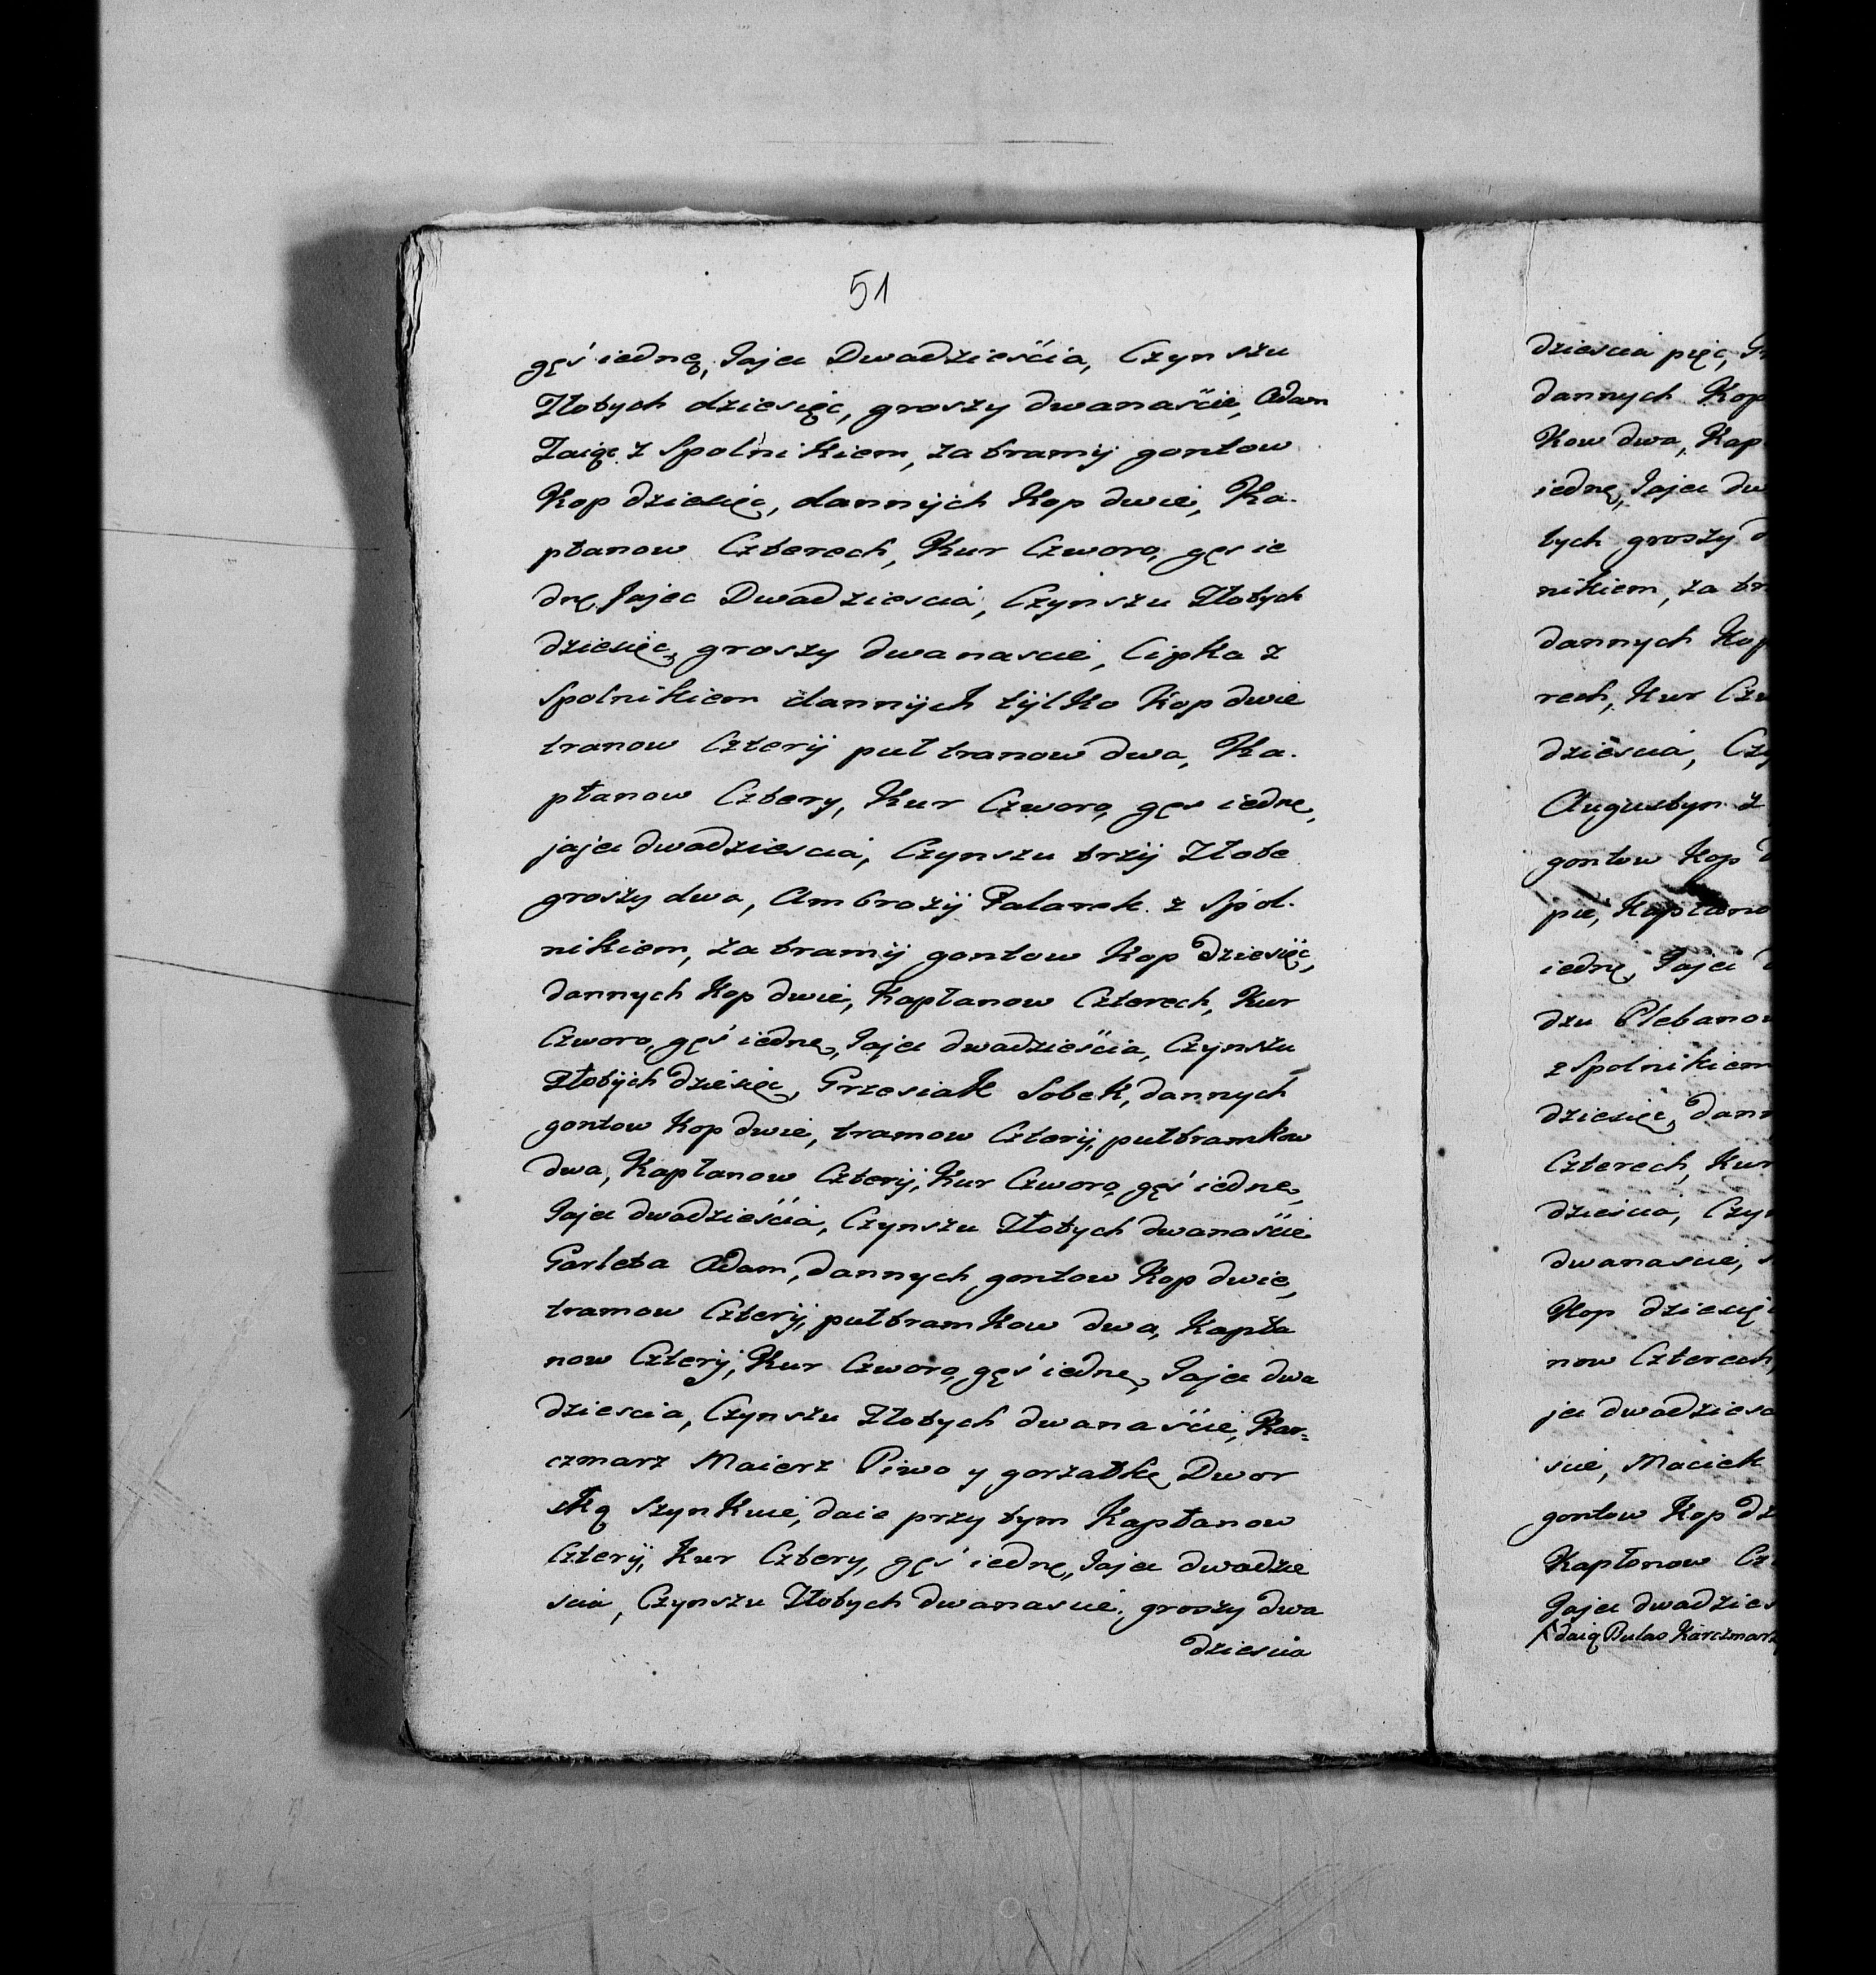 51
gęś iednę, Jaja Dwadzieścia, Czynszu
Złotych dziesięc, groszy dwanaście, Adam
Zaięc z Spolnikiem, za tramÿ gontow
Kop dziesięc, dannÿch Kop dwie, Ka-
płanow Czterech, Kur Czworo, gęs ie
dnę Jajec Dwadziescia, Czynszu Złotych
dziesięc, groszy dwanascie, Cipka z
Spolnikiem dannÿch tÿlko Kop dwie
tranow Czterÿ puł tranow dwa, Ka-
płanow Cztery, Kur Czworo, gęs iednę,
jaja dwadziescia, Czynszu trzÿ Złote
groszy dwa, AmbrozÿPalarek z Spol-
nikiem, za tramÿ gontow Kop dziesięć,
dannych Kop dwie, Kapłanow Czterech, Kur
Czworo, gęś iednę, Jaja dwadzieścia, Czynszu
Złotÿch dziesięc, Grzesiak Sobek, dannych
gontow Kop dwie, tramow Czterÿ, putramkow
dwa, Kapłanow Czterÿ, Kur Czworo, gęś iednę,
Jaja dwadzieścia, Czynszu Złotych dwanaście
Garleta Adam, dannych gontow Kop dwie,
tramow Czterÿ, pułtramkow dwa, Kapła
now Czterÿ, Kur Czworo, gęś iednę, Jaja dwa
dziescia, Czynszu Złotych dwanaście, Kar=
czmarz Maierz Piwo y gorzałkę Dwor
ską szynkuie, daie przy tym Kapłanow
Czterÿ, Kur Cztery, gęś iednę, Jaja dwadzie
scia, Czynszu Złotych dwanascie, groszy dwa
dziescia
dziescia pięc,
dannych Kop
kow dwa, Kap
iednę, Jaja dw
tych groszy d
nikiem, za tr
dannych Kop
rech, Kur Czw
dziescia, Czy
Augustyn z
gontow Kop d
pie, Kapłano
iednę, Jaja d
dzu Plebanow
z Spolnikiem
dziesięc, dann
Czterech, Kur
dziescia, Czyn
dwanascie,
Kop dziesięc
now Czterech,
ja dwadziesc
scie, Maciek
gontow Kop dz
Kapłanow Cz
Jaja dwadzies
daią Bulas Karczmarz